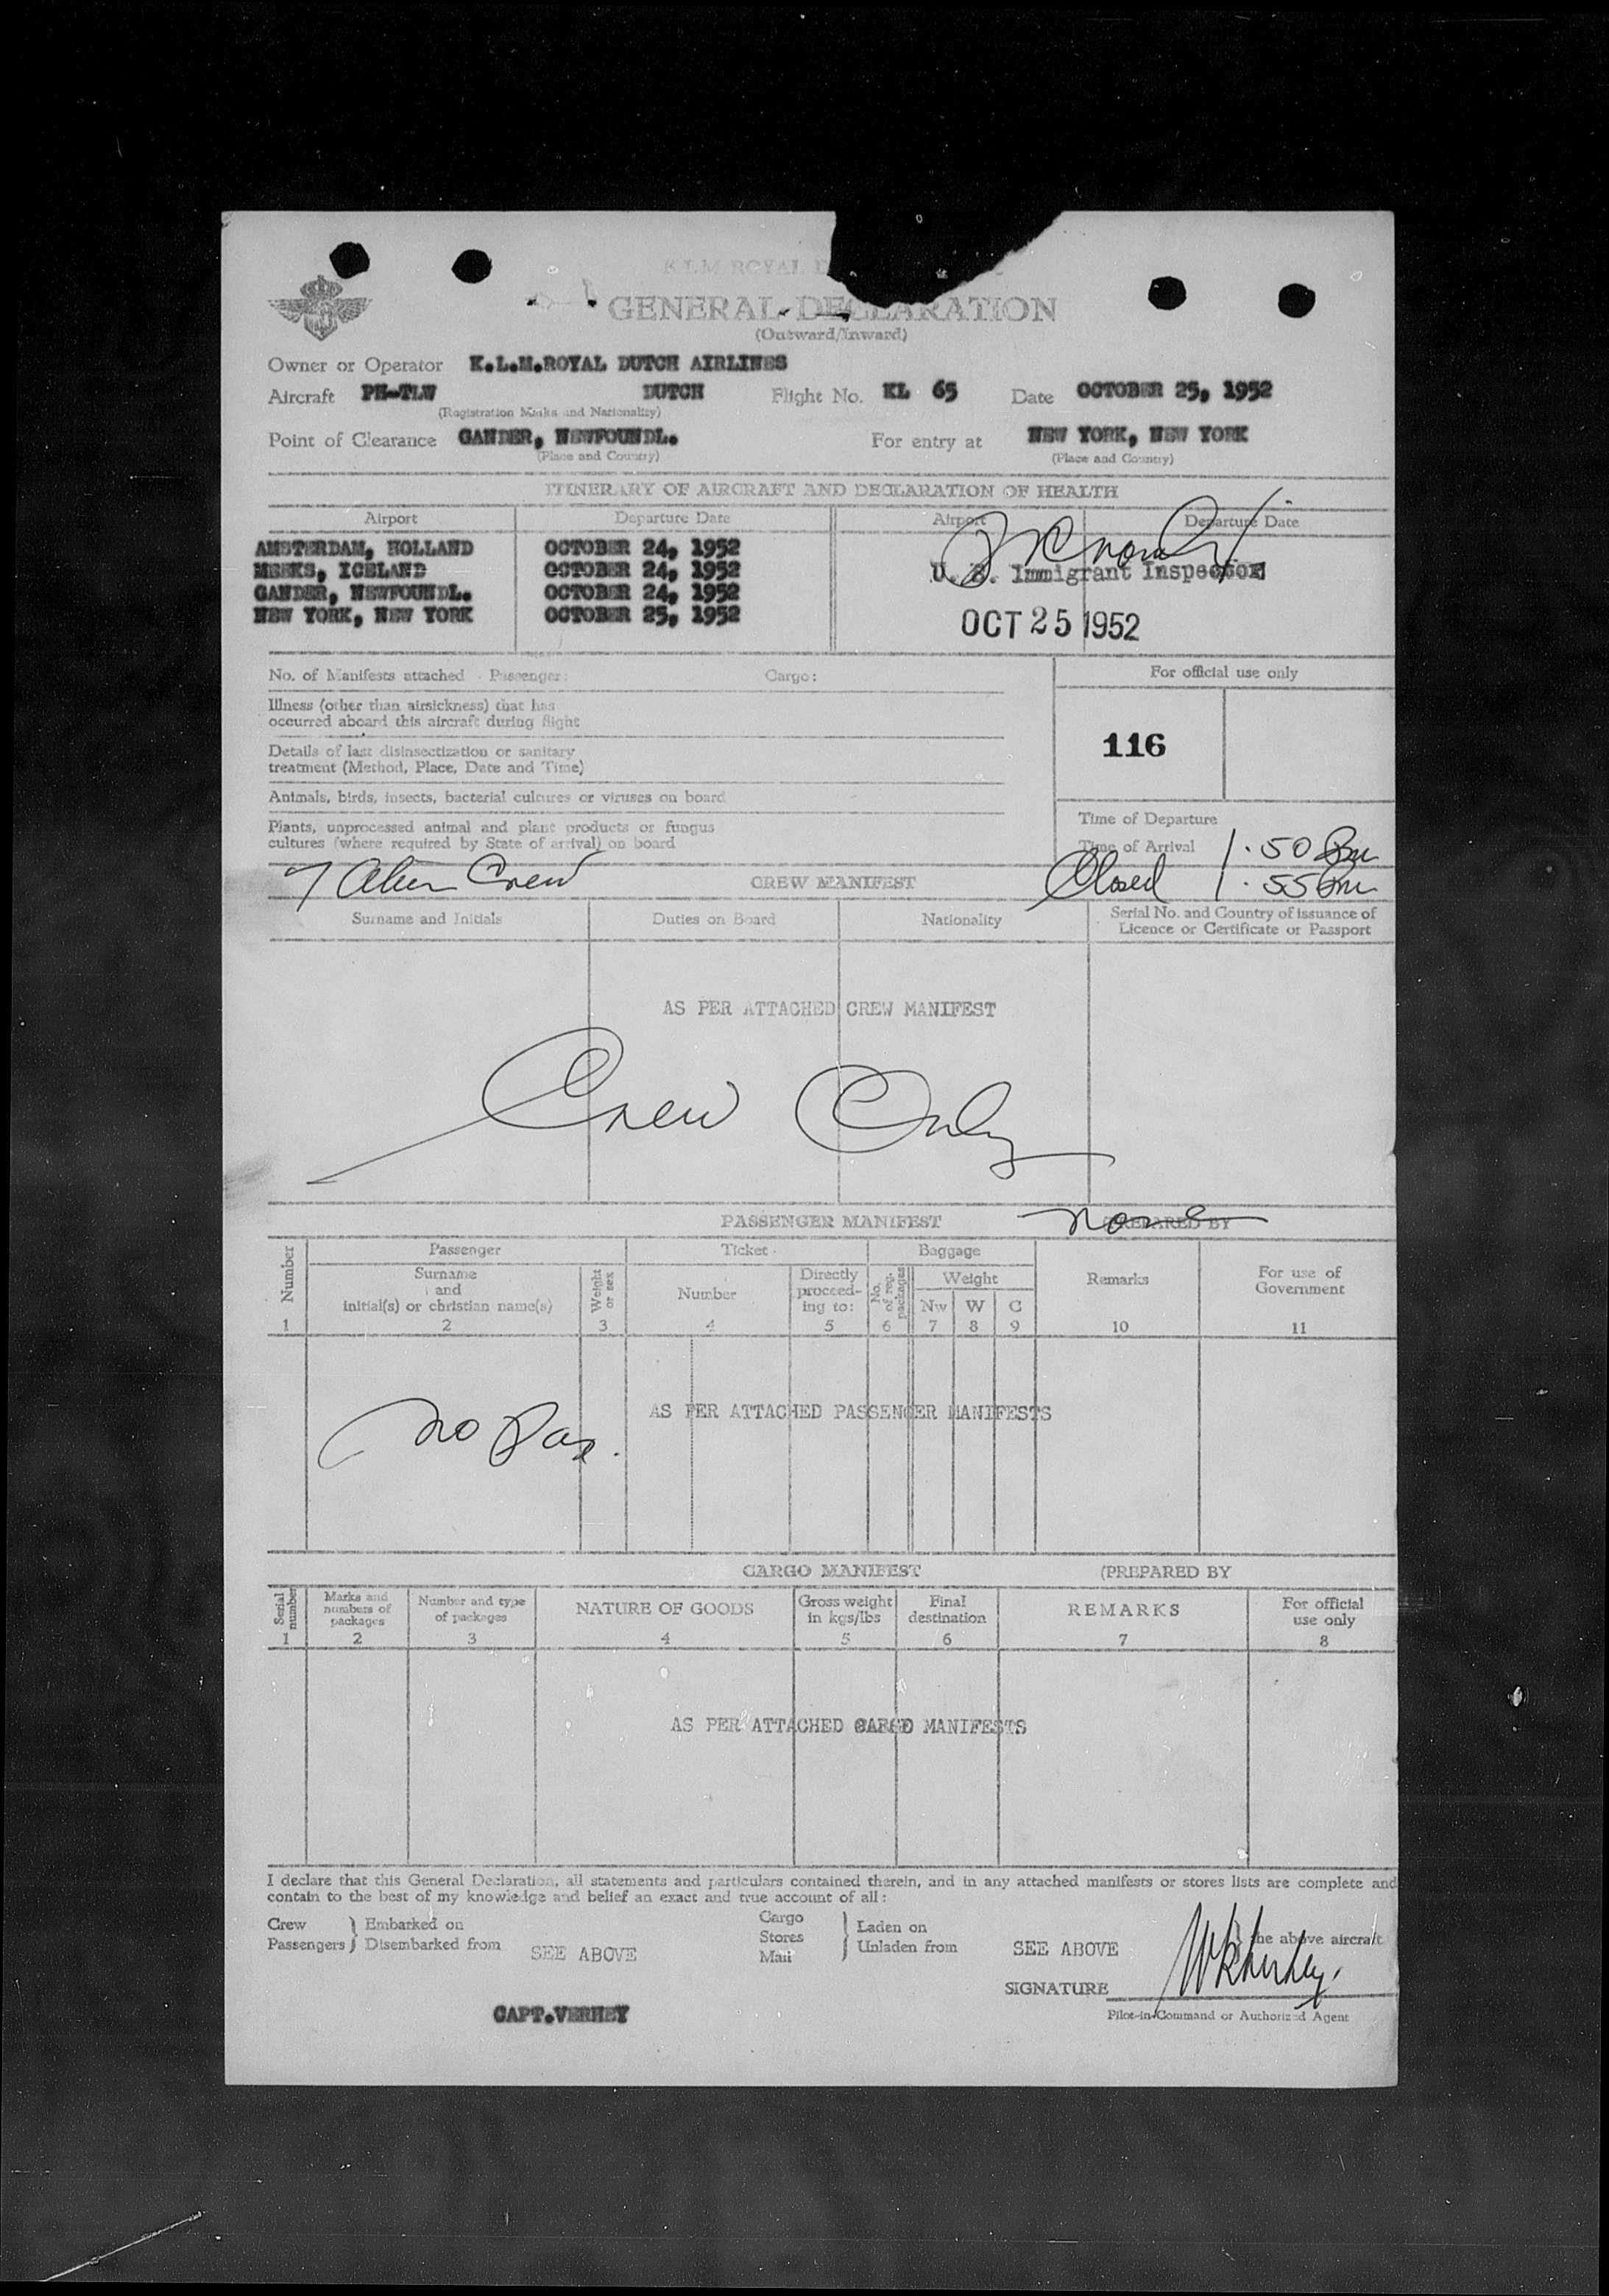 K.L.M. ROYAL D
GENERAL DECLARATION
(Outward/Inward)
Owner or Operator K.L.M.ROYAL DUTCH AIRLINES
Aircraft PH-TLW DUTCH Flight No. KL 65 Date OCTOBER 25, 1952
(Registration Marks and Nationality)
Point of Clearance GANDER, NEWFOUNDL. For entry at NEW YORK, NEW YORK
(Place and Country) (Place and Country)
ITINERARY OF AIRCRAFT AND DECLARATION OF HEALTH
Airport Departure Date Airport Departure Date
AMSTERDAM, HOLLAND OCTOBER 24, 1952
MEEKS, ICELAND OCTOBER 24, 1952 U. S. Immigrant Inspector
GANDER, NEWFOUNDL. OCTOBER 24, 1952
NEW YORK, NEW YORK OCTOBER 25, 1952 OCT 25 1952
No. of Manifests attached - Passenger: Cargo: For official use only
Illness (other than airsickness) that has
occurred aboard this aircraft during flight
Details of last disinsectization or sanitary
treatment (Method, Place, Date and Time)
116
Animals, birds, insects, bacterial cultures or viruses on board
Plants, unprocessed animal and plant products or fungus
cultures (where required by State of arrival) on board
Time of Departure
Time of Arrival 1.50 Pm
7 Alien Crew CREW MANIFEST Closed 1.55 Pm
Surname and Initials Duties on Board Nationality Serial No. and Country of issuance of
Licence or Certificate or Passport
AS PER ATTACHED CREW MANIFEST
Crew Only
PASSENGER MANIFEST (PREPARED BY None
Number Passenger Ticket Baggage
Surname and initial(s) or christian name(s) Weight or sex Number Directly proceeding to: No. of reg. packages Weight Remarks For use of Government
Nw W C
1 2 3 4 5 6 7 8 9 10 11
AS PER ATTACHED PASSENGER MANIFESTS
No Pax.
CARGO MANIFEST (PREPARED BY
Serial number Marks and numbers of packages Number and type of packages NATURE OF GOODS Gross weight in kgs/lbs Final destination REMARKS For official use only
1 2 3 4 5 6 7 8
AS PER ATTACHED CARGO MANIFESTS
I declare that this General Declaration, all statements and particulars contained therein, and in any attached manifests or stores lists are complete and
contain to the best of my knowledge and belief an exact and true account of all:
Crew Embarked on Cargo Laden on
Passengers Disembarked from SEE ABOVE Stores Unladen from SEE ABOVE the above aircraft
Mail
SIGNATURE
CAPT.VERHEY Pilot-in-Command or Authorized Agent